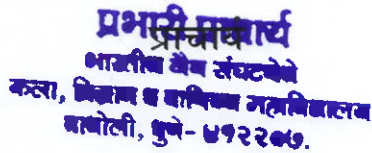 प्रभारी प्राचार्य
प्राचार्य
भारतीय जैन संघटनेचे
कला, विज्ञान व वाणिज्य महाविद्यालय
वाघोली, पुणे- ४१२२०७.